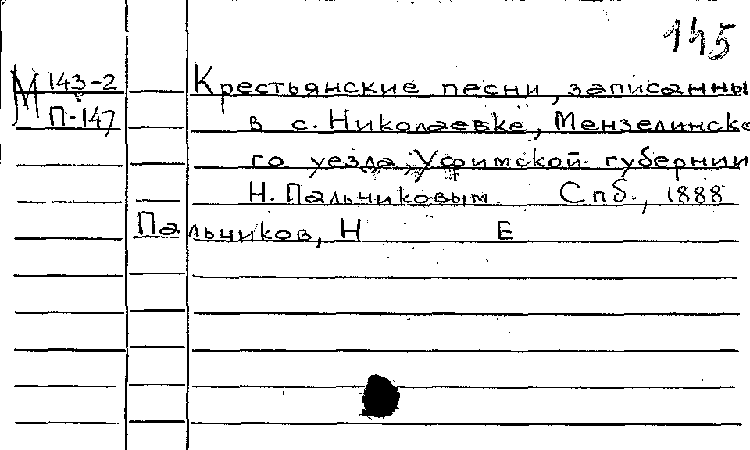 145
М 143-2 Крестьянские песни, записанны
П-147 в с. Николаевке, Мензелинско
го уезда, Уфимской губернии
Н. Пальчиковым Спб., 1888
Пальчиков, Н Е